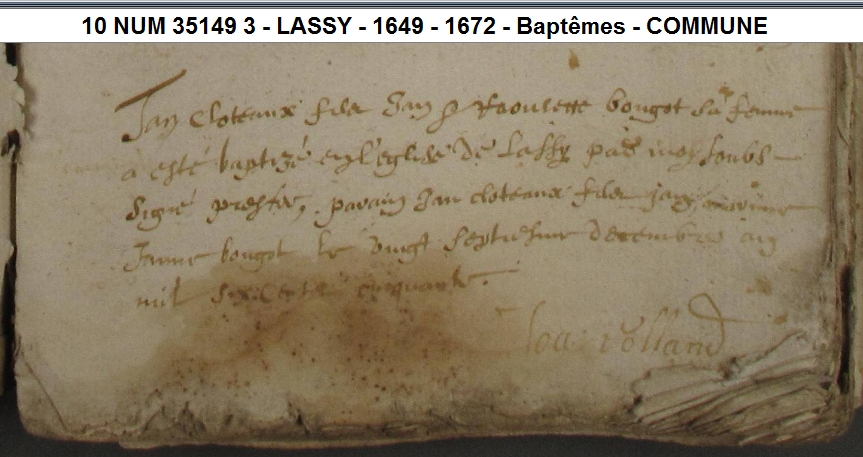 10 NUM 35149 3 - LASSY - 1649 - 1672 - Baptêmes - COMMUNE
Jan Cloteaux filx Jan & Raoulette bougot sa femme
a esté baptizé en l'eglise de Lassy par moy soubs
signé prestre, parain Jan cloteaux filx jan, marinne
Janne bougot le vingt septiesme decembre an
mil six cents cinquante.
rolland